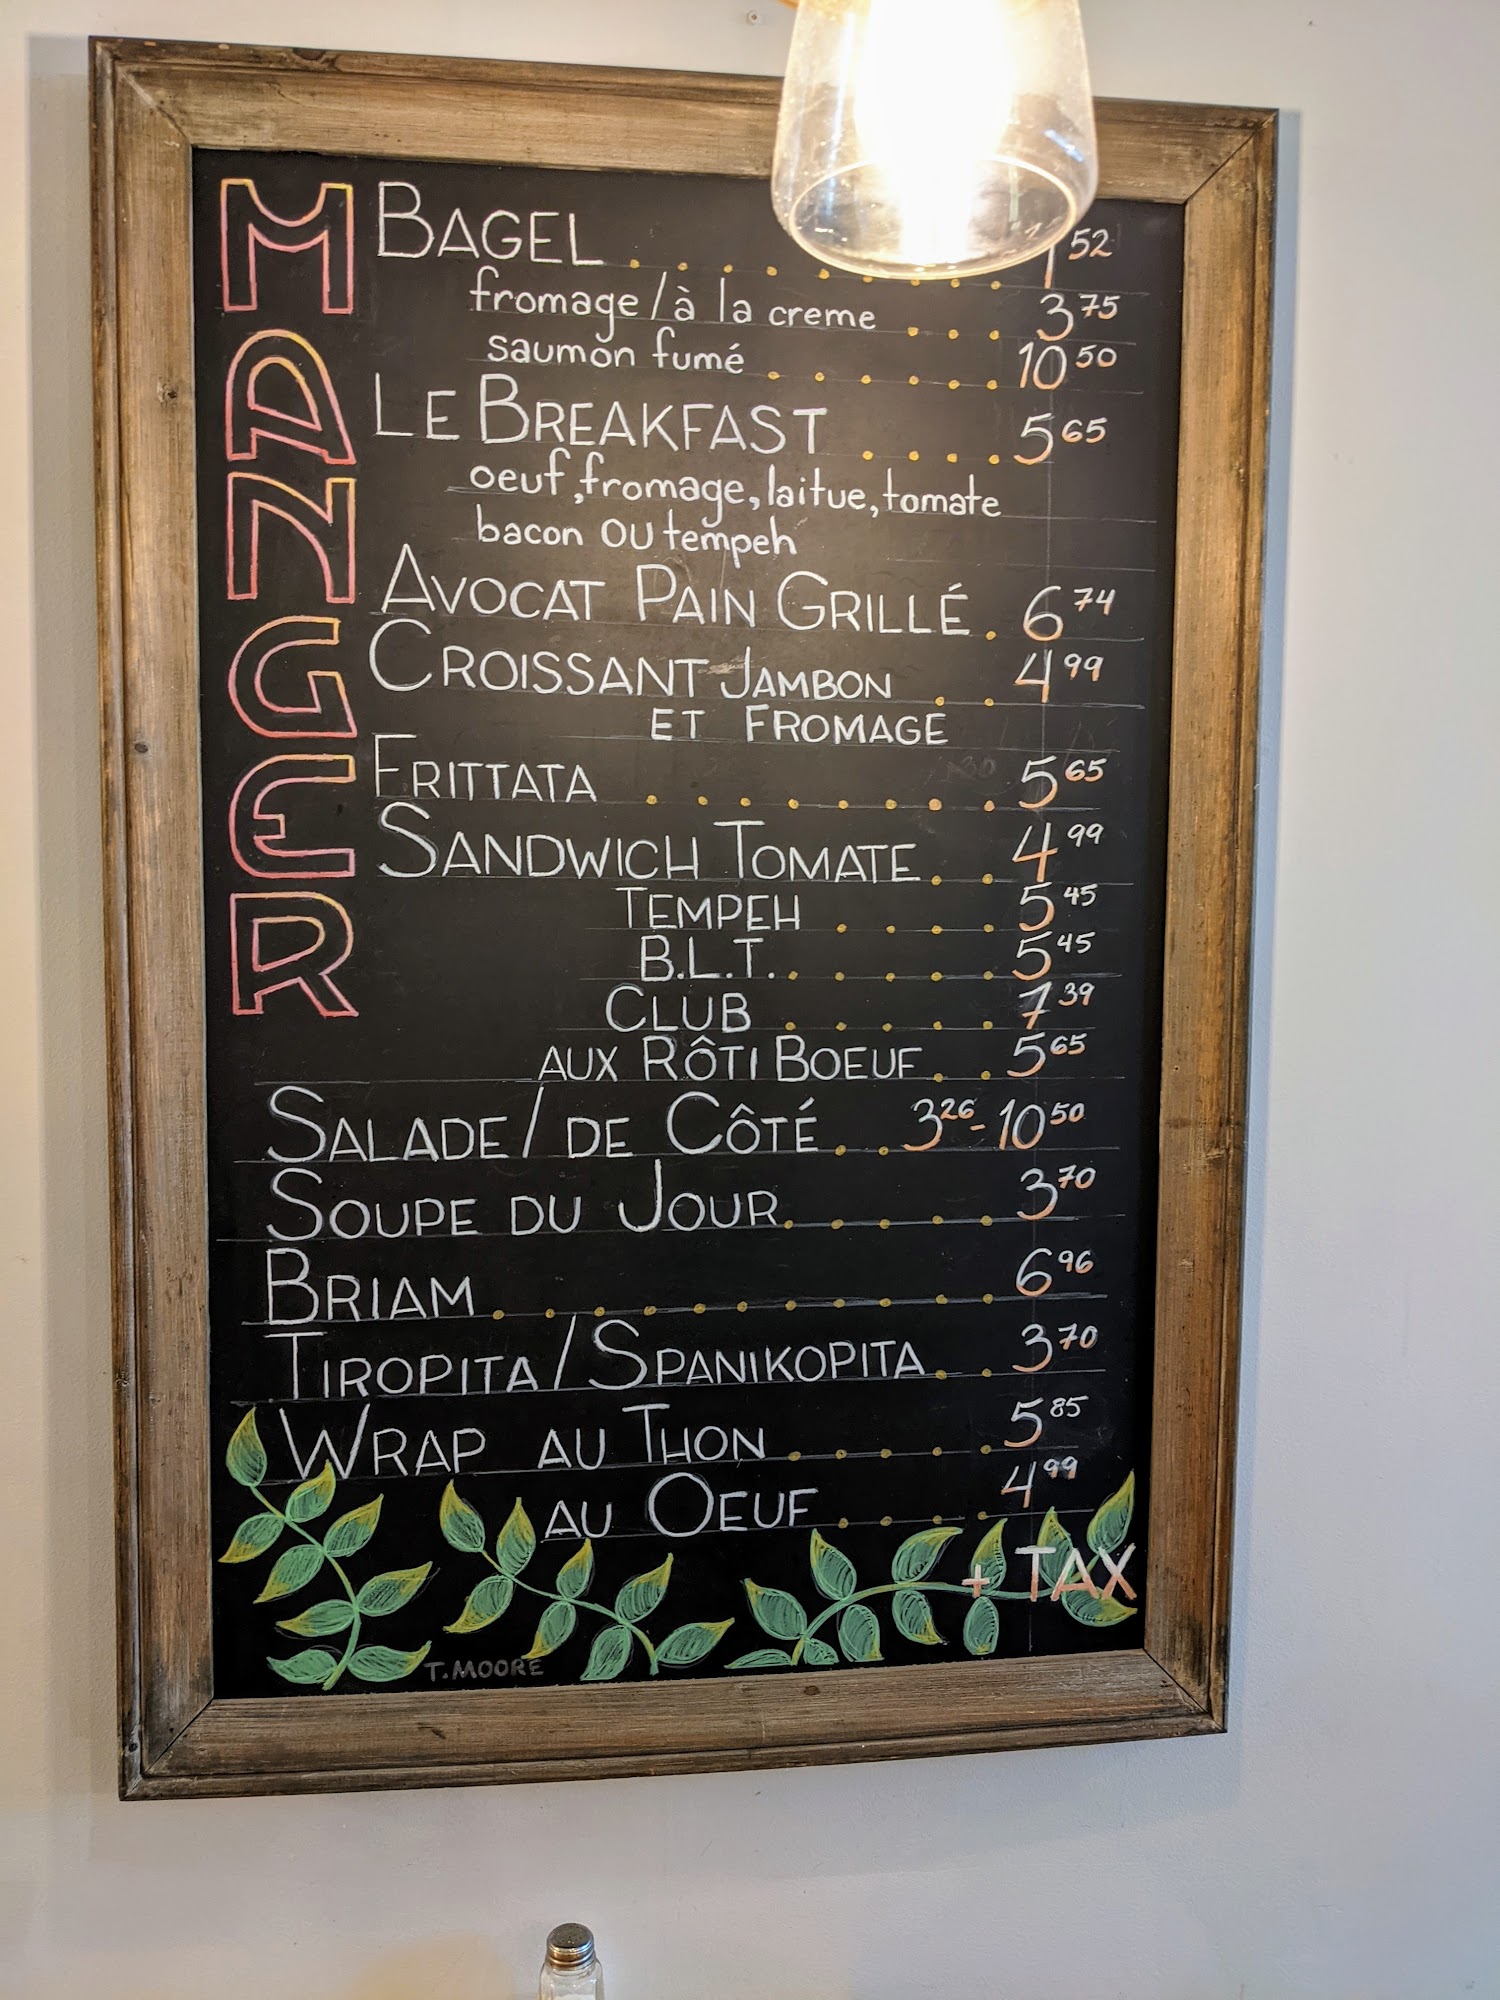 MANGER
BAGEL 52
fromage / à la creme 3 75
saumon fumé 10 50
LE BREAKFAST 5 65
oeuf, fromage, laitue, tomate
bacon OU tempeh
AVOCAT PAIN GRILLÉ 6 74
CROISSANT JAMBON 4 99
ET FROMAGE
FRITTATA 5 65
SANDWICH TOMATE 4 99
TEMPEH 5 45
B.L.T. 5 45
CLUB 7 39
AUX RÔTI BOEUF 5 65
SALADE / DE CÔTÉ 3 26 - 10 50
SOUPE DU JOUR 3 70
BRIAM 6 96
TIROPITA / SPANIKOPITA 3 70
WRAP AU THON 5 85
AU OEUF 4 99
+ TAX
T. MOORE